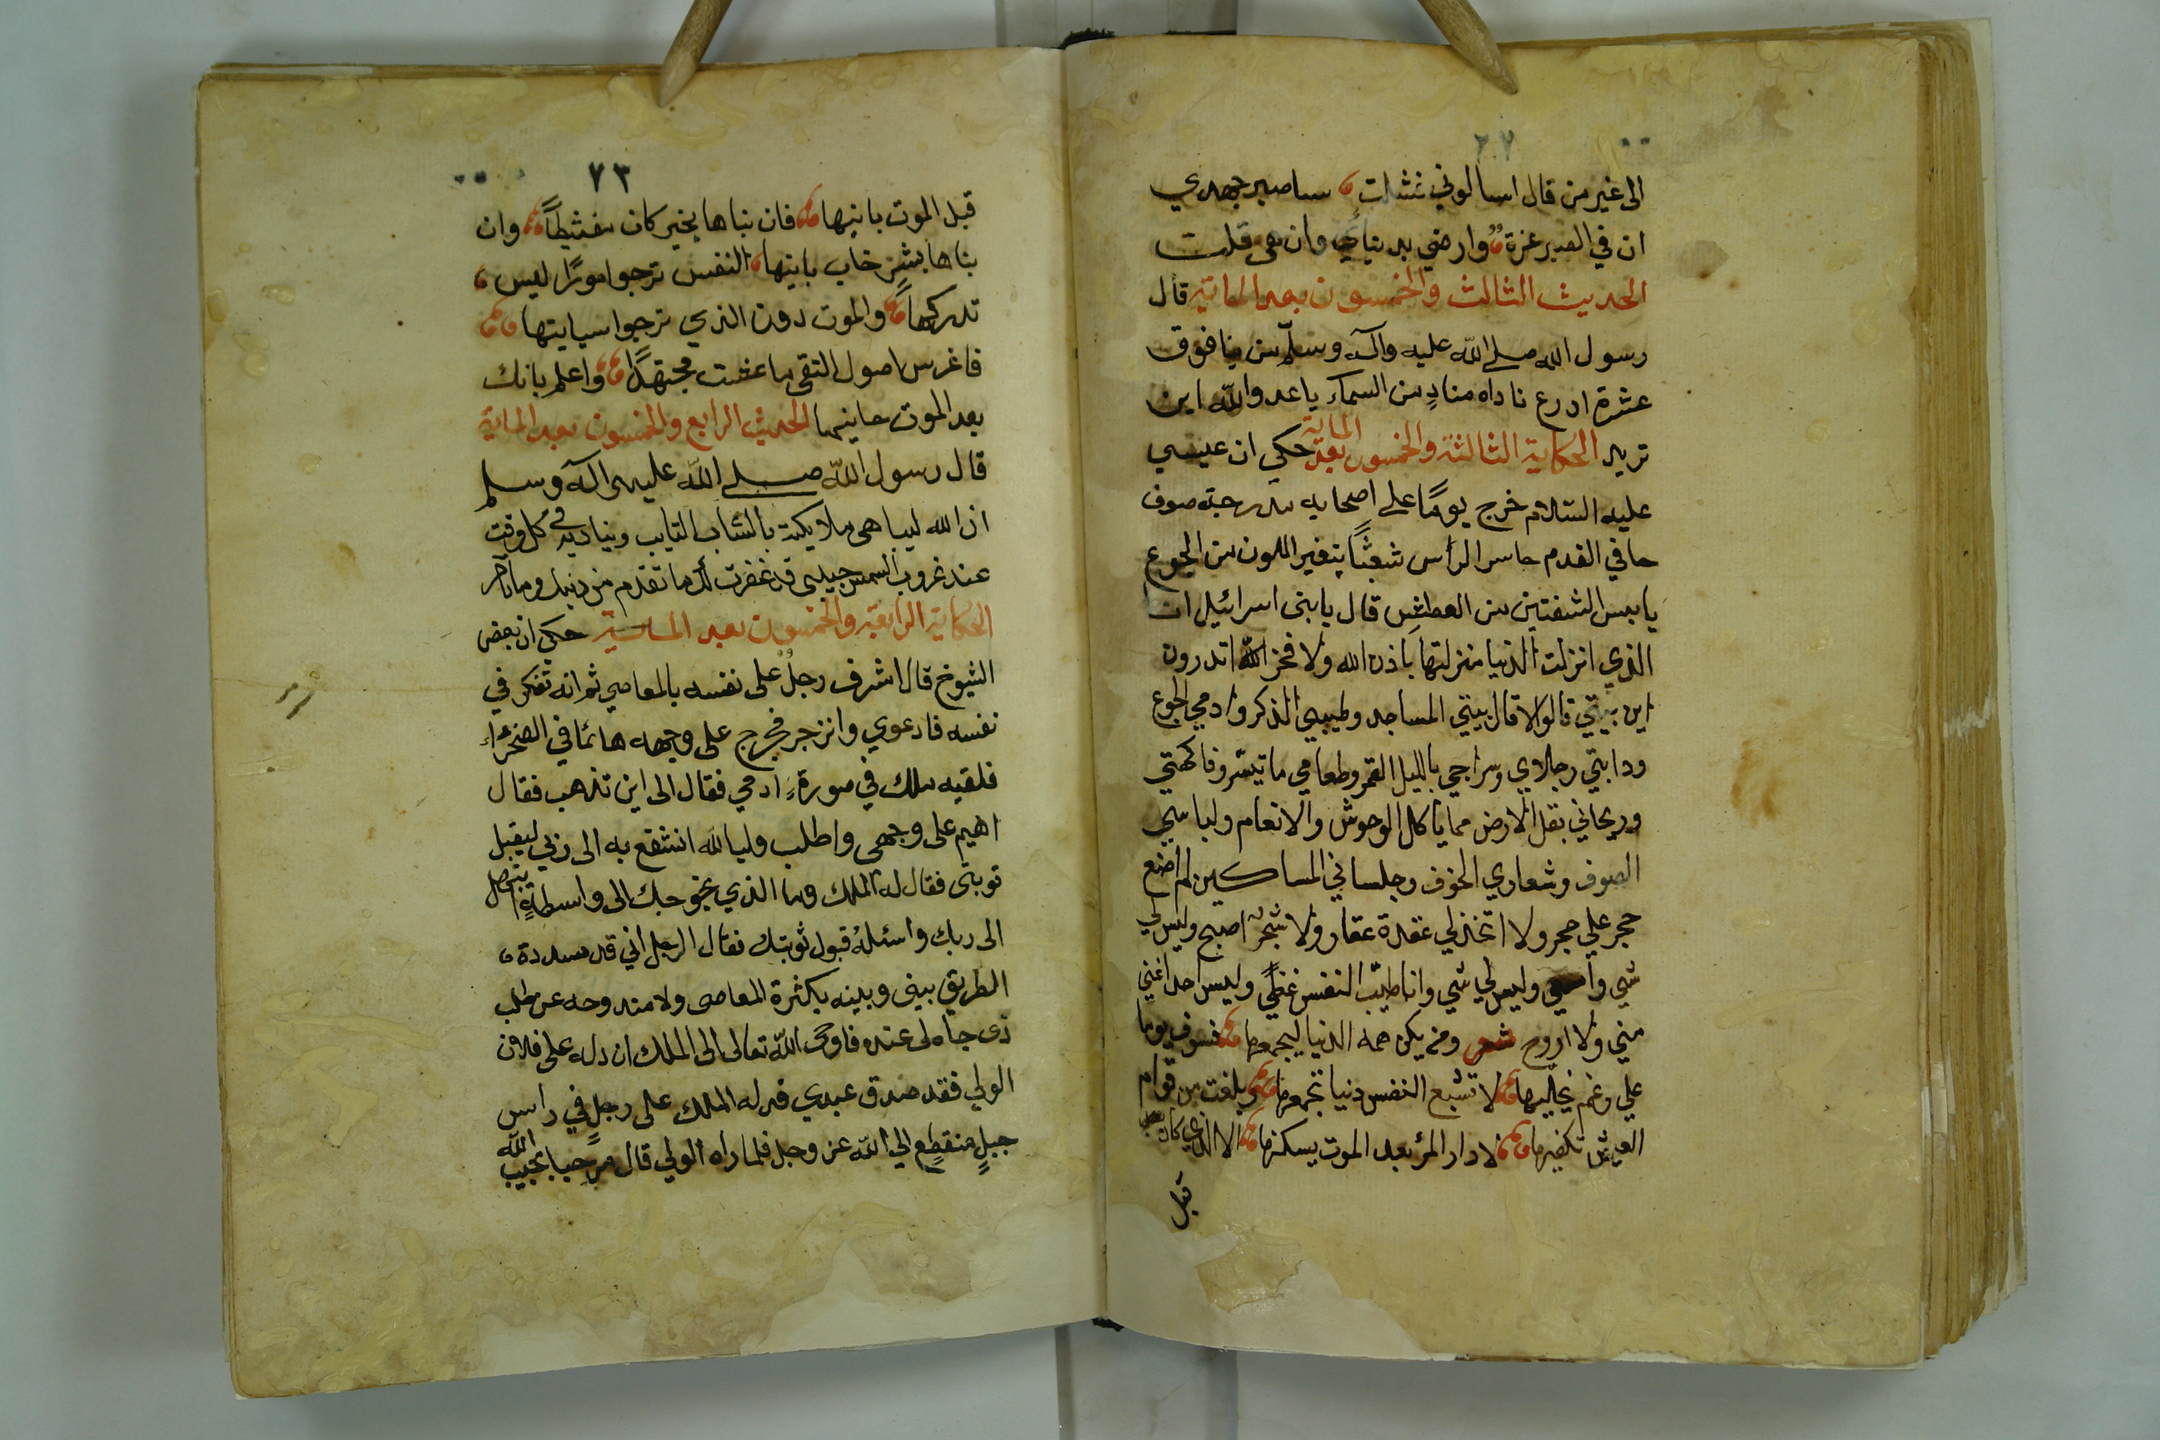 الى غير من قال اسالوني نشات سا صبر جهدي
ان في الصبر عزة وارضي بدنياي وان هي قلت
الحديث الثالث والخمسون بعد الماتيه قال
رسول الله صلى الله عليه وآله وسلم من بنا فوق
عشرة ادرع ناداه منادٍ من السماء يا عدو الله اين
تريد الحكاية الثالثة والخمسون بعد الماية حكي ان عيسي
عليه السلام خرج يومًا على اصحابه مدرجة صوف
حافي القدم حاسر الرأس شعثًا متغير اللون من الجوع
يابس الشفتين من العطش قال يا بنى اسرائيل انا
الذي انزلت الدنيا منزلتها باذن الله ولا فخر الله اتدرون
اين بيتي قالوا لا قال بيتي المساجد وطيبي الذكر وادمي الجوع
ودابتي رجلاي وسراجي بالليل القمر وطعامي ما تيسر وفاكهتي
وريحاني بقل الارض مما ياكل الوحوش والانعام ولباسي
الصوف وشعاري الخوف وجلساني المساكين لم اضع
حجر علي حجر ولا اتخذ لي عقدة عقار ولا شجر اصبح وليس لي
شي وامسي وليس لي شي وانا طيب النفس غني وليس احد اغني
مني ولا اروح شعر ومن يكن همه الدنيا ليجمعها فسوف يوما
علي رغم يخليها لا تشبع النفس دنيا تجمعها وبلغت من قوام
العيش تكفيها لا دار المرء بعد الموت يسكنها الا الذي كان
قبل
٧٣
قبل الموت بانيها فان بناها بخير كان مغتبطاً وان
بناها بشرٍ خاب بانيها النفس ترجوا امورًا ليس
تدركها والموت دون الذي ترجوا سيايتها
فاغرس اصول التقى ما عشت مجتهدًا واعلم بانك
بعد الموت جانيها الحديث الرابع والخمسون بعد الماية
قال رسول الله صلى الله عليه وآله وسلم
ان الله ليباهى ملايكته بالشاب التايب ويناديه في كل وقت
عند غروب الشمس حبيبي قد غفرت لك ما تقدم من ذنبك وما تأخر
الحكاية الرابعة والخمسون بعد الماية حكي ان بعض
الشيوخ قال اشرف رجلٌ على نفسه بالمعاصي ثم انه تفكر في
نفسه فادعوي وانزجر فخرج على وجهه هائما في الصحراء
فلقيه ملك في صورةِ ادمي فقال الى اين تذهب فقال
اهيم على وجهى واطلب وليا لله اتشفع به الى ربي ليقبل
توبتى فقال له الملك وما الذي يحوجك الى واسطةٍ ابتهل
الى ربك واسئله قبول توبتك فقال الرجل اني قد سددة
الطريق بينى وبينه بكثرة المعاصى ولا مندوحه عن طلب
ذى جاه لى عنده فاوحى الله تعالى الى الملك ان دله على فلان
الولي فقد صدق عبدي فدله الملك على رجلٍ في راس
جبلٍ منقطعٍ الي الله عز وجل فلما راه الولي قال مرحبا بحبيب الله